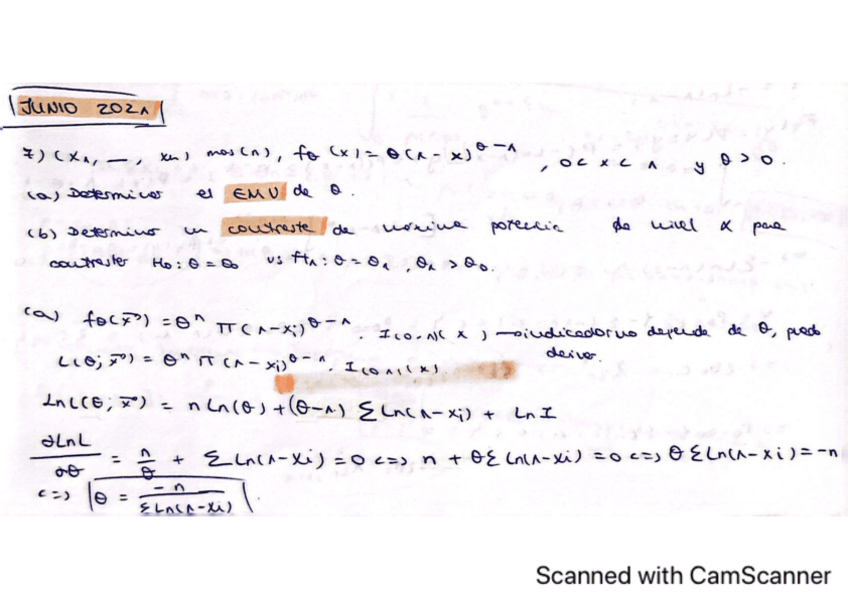 JUNIO 2021
7) (X1, —, Xn) mas(n), fθ(x) = θ(1-x)^θ-1, 0 < x < 1 y θ > 0.
(a) Determinar el EMV de θ.
(b) Determina un contraste de máxima potencia de nivel α para
contrastar H0: θ = θ0 vs H1: θ = θ1, θ1 > θ0.
(a) fθ(x⃗) = θ^n π(1-xi)^θ-1 · I(0,1)(x) → indicador no depende de θ, puedo
derivar.
L(θ; x⃗) = θ^n π(1-xi)^θ-1 · I(0,1)(x).
LnL(θ; x⃗) = n Ln(θ) + (θ-1) Σ Ln(1-xi) + Ln I
∂LnL/∂θ = n/θ + Σ Ln(1-xi) = 0 <=> n + θΣ Ln(1-xi) = 0 <=> θ Σ Ln(1-xi) = -n
<=> θ = -n/ΣLn(1-xi).
Scanned with CamScanner